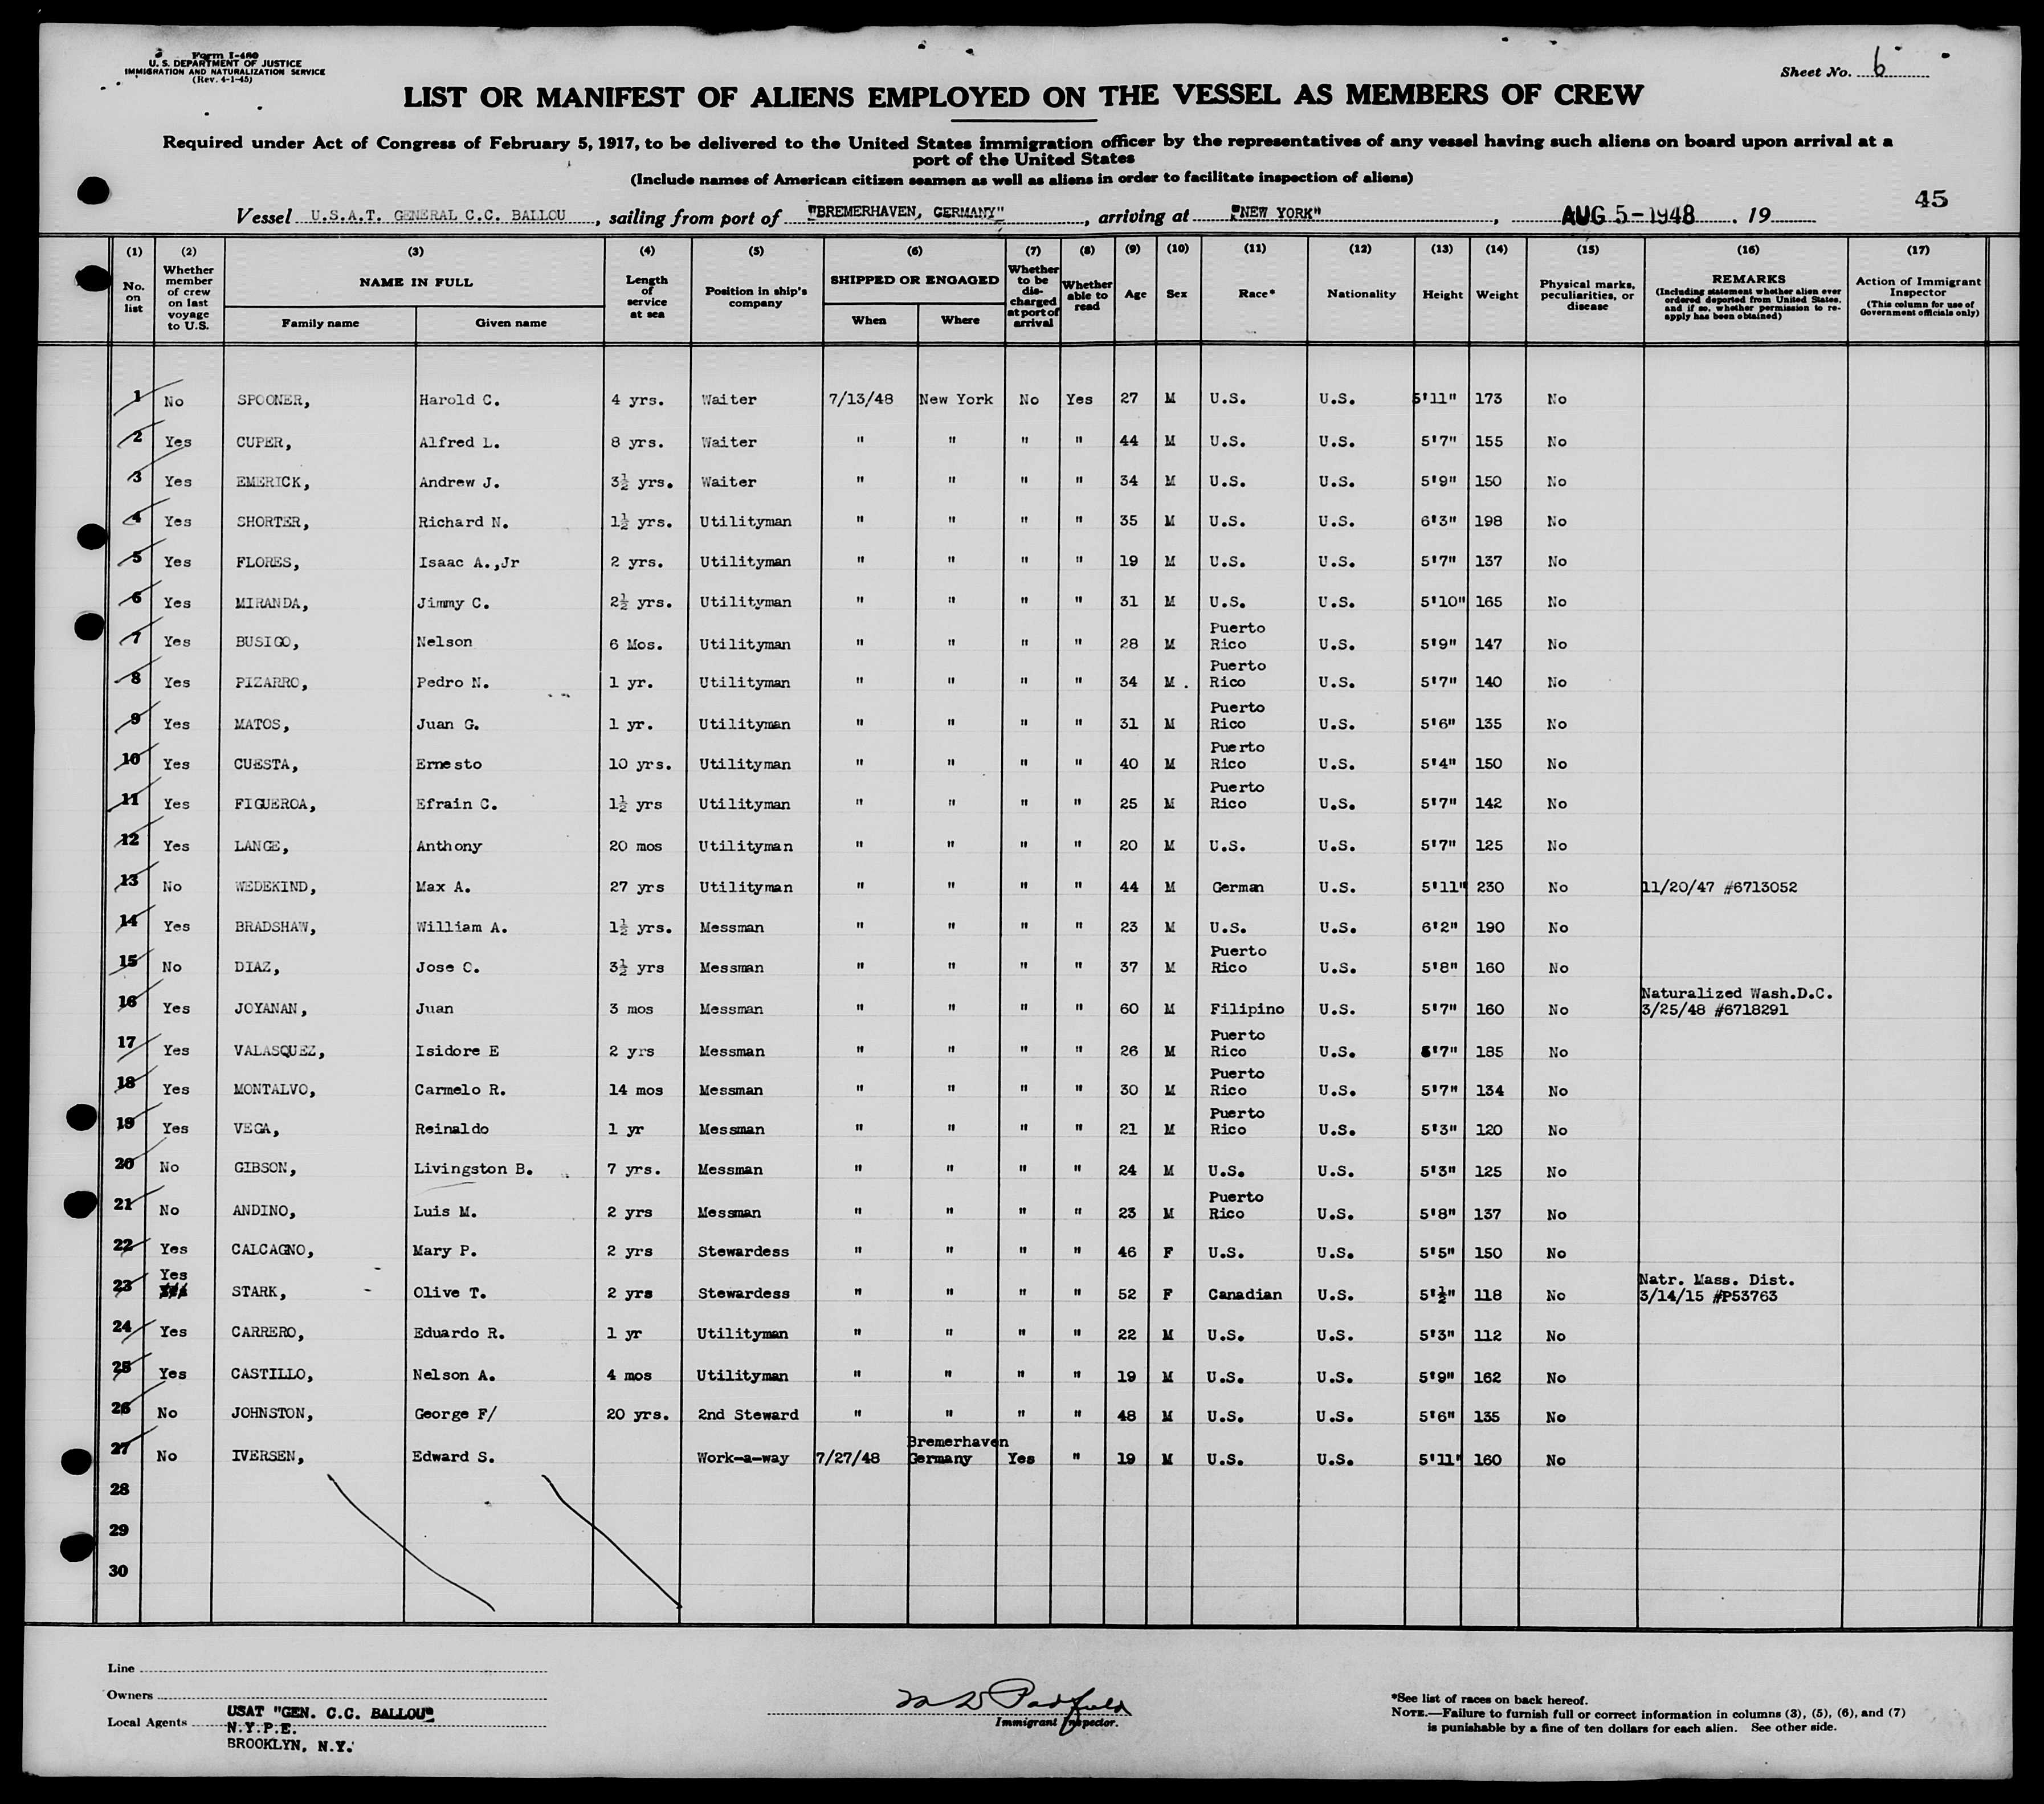 Form I-480
U. S. DEPARTMENT OF JUSTICE
IMMIGRATION AND NATURALIZATION SERVICE
(Rev. 4-1-45)
Sheet No. 6
LIST OR MANIFEST OF ALIENS EMPLOYED ON THE VESSEL AS MEMBERS OF CREW
Required under Act of Congress of February 5, 1917, to be delivered to the United States immigration officer by the representatives of any vessel having such aliens on board upon arrival at a
port of the United States
(Include names of American citizen seamen as well as aliens in order to facilitate inspection of aliens)
45
Vessel U.S.A.T. GENERAL C.C. BALLOU, sailing from port of "BREMERHAVEN, GERMANY", arriving at "NEW YORK", AUG 5-1948, 19
(1) No. on list (2) Whether member of crew on last voyage to U.S. (3) NAME IN FULL Family name Given name (4) Length of service at sea (5) Position in ship's company (6) SHIPPED OR ENGAGED When Where (7) Whether to be discharged at port of arrival (8) Whether able to read (9) Age (10) Sex (11) Race* (12) Nationality (13) Height (14) Weight (15) Physical marks, peculiarities, or disease (16) REMARKS (Including statement whether alien ever ordered deported from United States, and if so, whether permission to re-apply has been obtained) (17) Action of Immigrant Inspector (This column for use of Government officials only)
1 No SPOONER, Harold C. 4 yrs. Waiter 7/13/48 New York No Yes 27 M U.S. U.S. 5'11" 173 No
2 Yes CUPER, Alfred L. 8 yrs. Waiter " " " " 44 M U.S. U.S. 5'7" 155 No
3 Yes EMERICK, Andrew J. 3½ yrs. Waiter " " " " 34 M U.S. U.S. 5'9" 150 No
4 Yes SHORTER, Richard N. 1½ yrs. Utilityman " " " " 35 M U.S. U.S. 6'3" 198 No
5 Yes FLORES, Isaac A.,Jr 2 yrs. Utilityman " " " " 19 M U.S. U.S. 5'7" 137 No
6 Yes MIRANDA, Jimmy C. 2½ yrs. Utilityman " " " " 31 M U.S. U.S. 5'10" 165 No
7 Yes BUSIGO, Nelson 6 Mos. Utilityman " " " " 28 M Puerto Rico U.S. 5'9" 147 No
8 Yes PIZARRO, Pedro N. 1 yr. Utilityman " " " " 34 M . Puerto Rico U.S. 5'7" 140 No
9 Yes MATOS, Juan G. 1 yr. Utilityman " " " " 31 M Puerto Rico U.S. 5'6" 135 No
10 Yes CUESTA, Ernesto 10 yrs. Utilityman " " " " 40 M Puerto Rico U.S. 5'4" 150 No
11 Yes FIGUEROA, Efrain C. 1½ yrs Utilityman " " " " 25 M Puerto Rico U.S. 5'7" 142 No
12 Yes LANGE, Anthony 20 mos Utilityman " " " " 20 M U.S. U.S. 5'7" 125 No
13 No WEDEKIND, Max A. 27 yrs Utilityman " " " " 44 M German U.S. 5'11" 230 No 11/20/47 #6713052
14 Yes BRADSHAW, William A. 1½ yrs. Messman " " " " 23 M U.S. U.S. 6'2" 190 No
15 No DIAZ, Jose O. 3½ yrs Messman " " " " 37 M Puerto Rico U.S. 5'8" 160 No
16 Yes JOYANAN, Juan 3 mos Messman " " " " 60 M Filipino U.S. 5'7" 160 No Naturalized Wash.D.C. 3/25/48 #6718291
17 Yes VALASQUEZ, Isidore E 2 yrs Messman " " " " 26 M Puerto Rico U.S. 5'7" 185 No
18 Yes MONTALVO, Carmelo R. 14 mos Messman " " " " 30 M Puerto Rico U.S. 5'7" 134 No
19 Yes VEGA, Reinaldo 1 yr Messman " " " " 21 M Puerto Rico U.S. 5'3" 120 No
20 No GIBSON, Livingston B. 7 yrs. Messman " " " " 24 M U.S. U.S. 5'3" 125 No
21 No ANDINO, Luis M. 2 yrs Messman " " " " 23 M Puerto Rico U.S. 5'8" 137 No
22 Yes CALCAGNO, Mary P. 2 yrs Stewardess " " " " 46 F U.S. U.S. 5'5" 150 No
23 Yes STARK, Olive T. 2 yrs Stewardess " " " " 52 F Canadian U.S. 5'½" 118 No Natr. Mass. Dist. 3/14/15 #P53763
24 Yes CARRERO, Eduardo R. 1 yr Utilityman " " " " 22 M U.S. U.S. 5'3" 112 No
25 Yes CASTILLO, Nelson A. 4 mos Utilityman " " " " 19 M U.S. U.S. 5'9" 162 No
26 No JOHNSTON, George F/ 20 yrs. 2nd Steward " " " " 48 M U.S. U.S. 5'6" 135 No
27 No IVERSEN, Edward S. Work-a-way 7/27/48 Bremerhaven Germany Yes " 19 M U.S. U.S. 5'11" 160 No
28
29
30
Line
Owners
Local Agents USAT "GEN. C.C. BALLOU"
N.Y.P.E.
BROOKLYN, N.Y.
M D Padfield
Immigrant Inspector.
*See list of races on back hereof.
NOTE.—Failure to furnish full or correct information in columns (3), (5), (6), and (7)
is punishable by a fine of ten dollars for each alien. See other side.